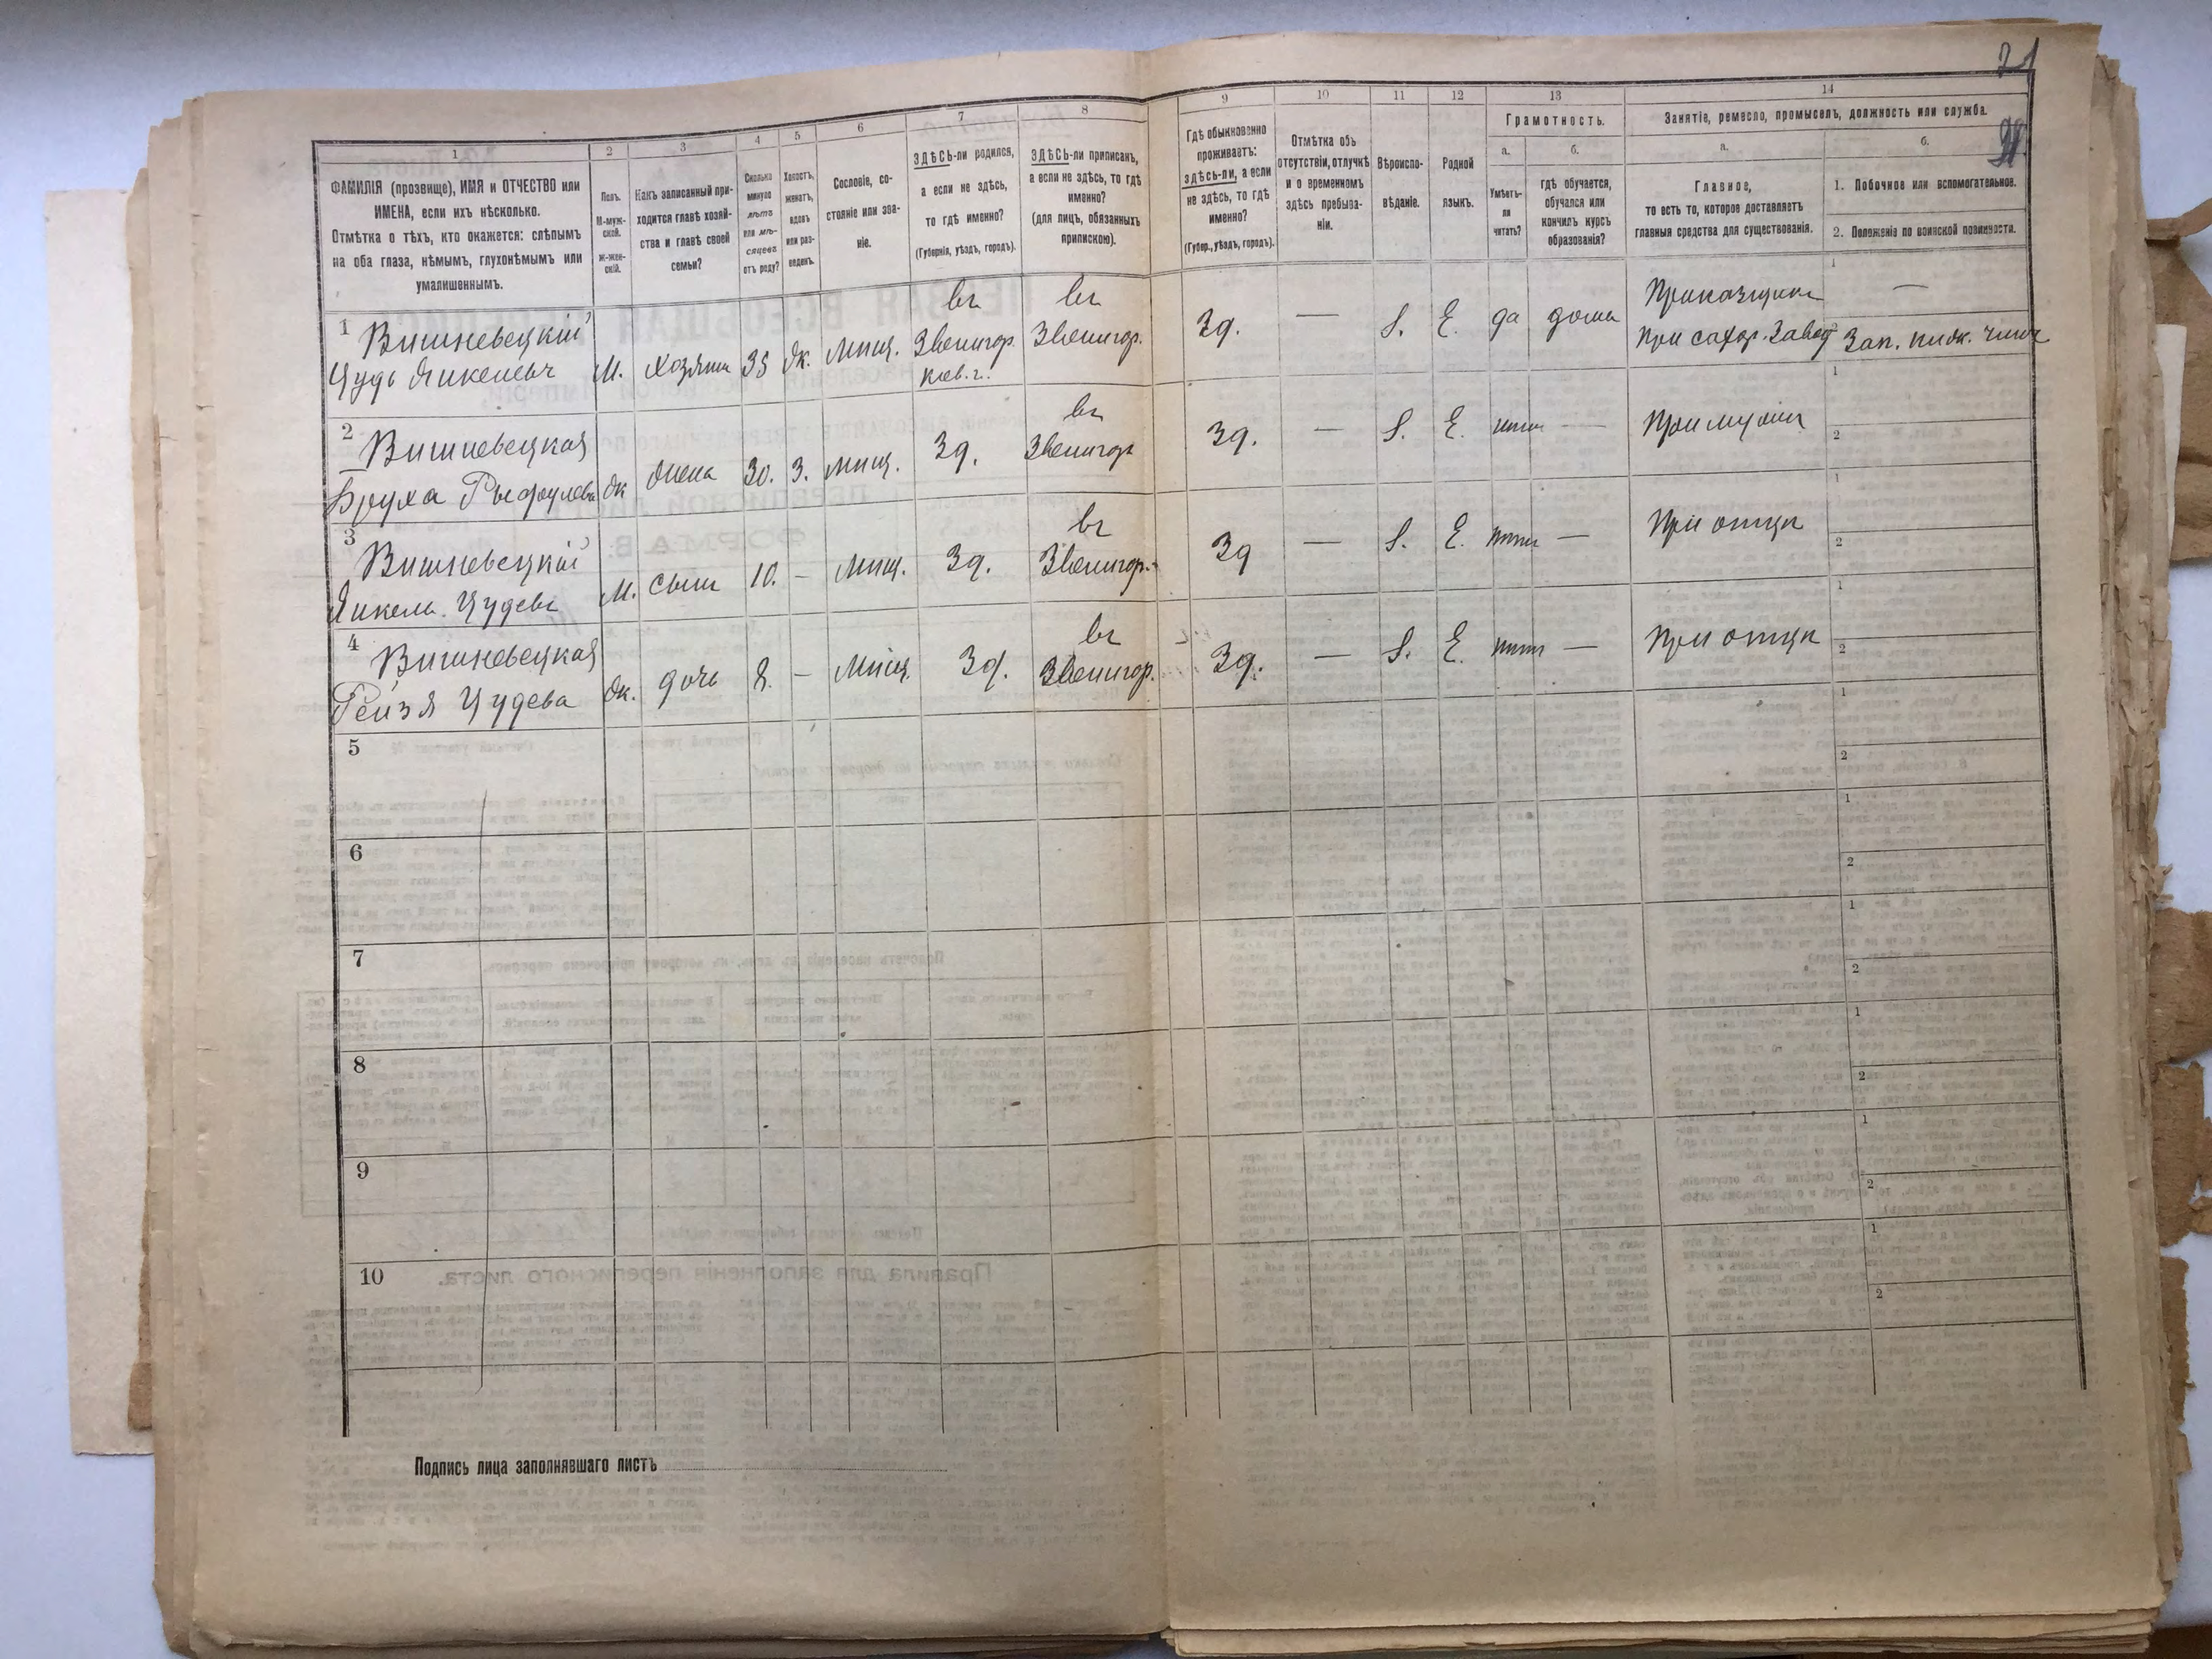 21
1
2
3
4
5
6
7
8
9
10
11
12
13
14
ФАМИЛІЯ (прозвище), ИМЯ и ОТЧЕСТВО или
ИМЕНА, если ихъ нѣсколько.
Отмѣтка о тѣхъ, кто окажется: слѣпымъ
на оба глаза, нѣмымъ, глухонѣмымъ или
умалишеннымъ.
Полъ.
М-муж-
ской.
Ж-жен-
скій.
Какъ записанный при-
ходится главѣ хозяй-
ства и главѣ своей
семьи?
Сколько
минуло
лѣтъ
или мѣ-
сяцевъ
отъ роду?
Холостъ,
женатъ,
вдовъ
или раз-
веденъ.
Сословіе, со-
стояніе или зва-
ніе.
ЗДѢСЬ-ли родился,
а если не здѣсь,
то гдѣ именно?
(Губернія, уѣздъ, городъ).
ЗДѢСЬ-ли приписанъ,
а если не здѣсь, то гдѣ
именно?
(для лицъ, обязанныхъ
припискою).
Гдѣ обыкновенно
проживаетъ:
здѣсь-ли, а если
не здѣсь, то гдѣ
именно?
(Губер., уѣздъ, городъ).
Отмѣтка объ
отсутствіи, отлучкѣ
и о временномъ
здѣсь пребыва-
ніи.
Вѣроиспо-
вѣданіе.
Родной
языкъ.
Грамотность.
а.
Умѣетъ-
ли
читать?
б.
гдѣ обучается,
обучался или
кончилъ курсъ
образованія?
Занятіе, ремесло, промыселъ, должность или служба.
а.
Главное,
то есть то, которое доставляетъ
главныя средства для существованія.
б.
1. Побочное или вспомогательное.
2. Положеніе по воинской повинности.
1 Вишневецкій
Цудь Янкелевъ М. хозяинъ 35 ж. мѣщ. въ Звенигор. Кіев. г. въ Звенигор. Зд. — І. Е. да дома Приказчикъ при сахар. завод —
Зап. нижн. чинъ
2 Вишневецкая
Бруха Рыфулева ж жена 30. З. мѣщ. Зд. въ Звенигор Зд. — І. Е. нѣтъ — При мужѣ
3 Вишневецкій
Янкель Цудевъ М. сынъ 10. — мѣщ. Зд. въ Звенигор. Зд — І. Е. нѣтъ — При отцѣ
4 Вишневецкая
Рейзя Цудева ж. дочь 8. — мѣщ. Зд. въ Звенигор. Зд. — І. Е. нѣтъ — При отцѣ
5
6
7
8
9
10
Подпись лица заполнявшаго листъ